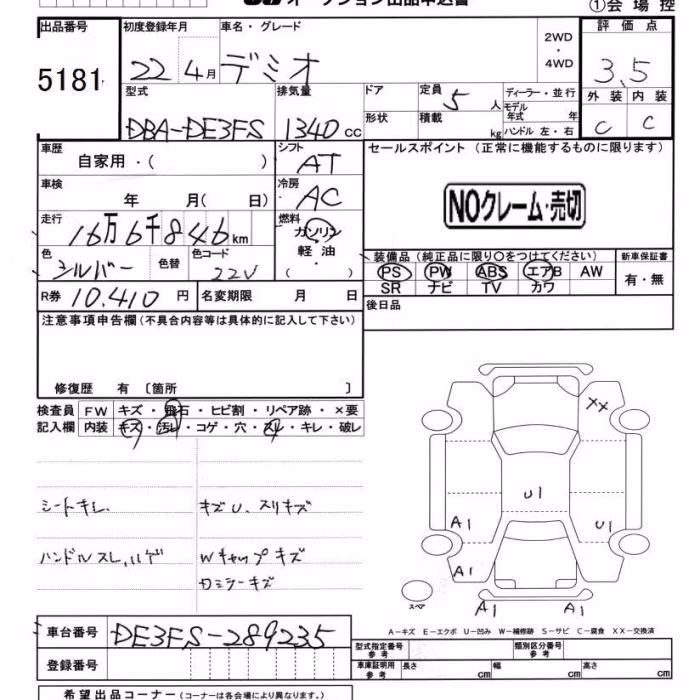 オークション出品申込書
①会場控
出品番号 初度登録年月 車名・グレード 2WD・4WD 評価点
5181 22 4月 デミオ 3.5
型式 排気量 ドア 定員 5 人 ディーラー・並行 外装 内装
DBA-DE3FS 1340cc 形状 積載 kg モデル年式 年 C C
ハンドル 左・右
車歴 自家用・( ) シフト AT セールスポイント(正常に機能するものに限ります)
車検 年 月( 日) 冷房 AC NOクレーム・売切
走行 16万6千846km 燃料 ガソリン・軽油・( )
色 シルバー 色替 色コード 22V 装備品(純正品に限り○をつけてください) 新車保証書
PS PW ABS エアB AW 有・無
SR ナビ TV カワ
R券 10,410円 名変期限 月 日 後日品
注意事項申告欄(不具合内容等は具体的に記入して下さい)
修復歴 有 〔箇所 〕
検査員記入欄 FW キズ・飛石・ヒビ割・リペア跡・×要
内装 キズ・汚レ・コゲ・穴・スレ・キレ・破レ
シートキレ. キズU. スリキズ
ハンドルスレ,ハゲ Wキャップキズ
ロミラーキズ
XX
U1
A1 U1
A1
スペア A1 A1
A-キズ E-エクボ U-凹み W-補修跡 S-サビ C-腐食 XX-交換済
車台番号 DE3FS-289235
型式指定番号参考 類別区分番号参考
登録番号
車庫証明用参考 長さ cm 幅 cm 高さ cm
希望出品コーナー(コーナーは各会場により異なります。)